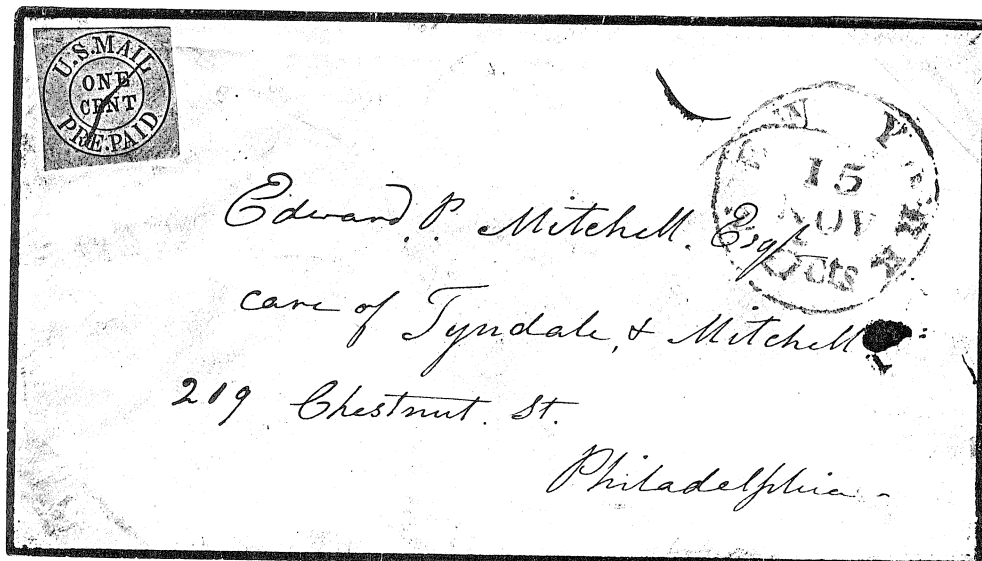 U.S.MAIL
ONE
CENT
PRE-PAID
NEW YORK
15
NOV
cts
Edward. P. Mitchell. Esq
care of Tyndale, & Mitchell
219 Chestnut. St.
Philadelphia -